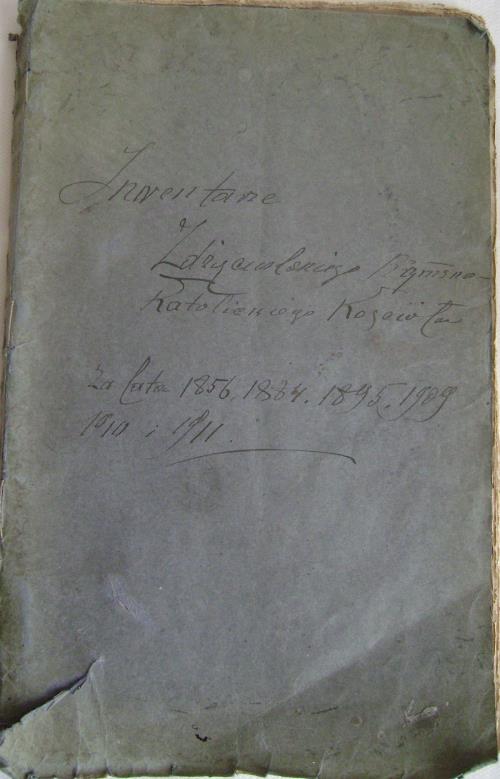 Inwentarze
Zdzięcielskiego Rzymsko-
Katolickiego Kościoła
za lata 1856, 1884. 1895, 1909
1910 i 1911.